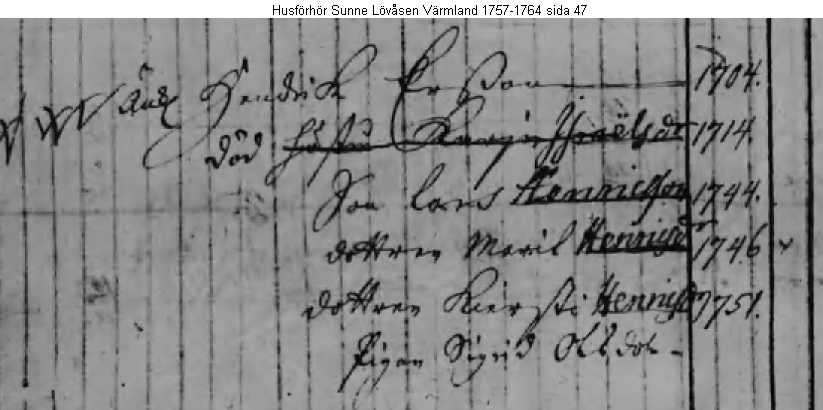 Husförhör Sunne Lövåsen Värmland 1757-1764 sida 47
Änk Hendrik Erßon 1704.
död hustru Karin Israelsdt 1714.
Son Lars Henricsson 1744.
dottren Marit Henrisd 1746
dottren Kiersti Henrisd 1751.
Pigan Sigrid Olsdot.